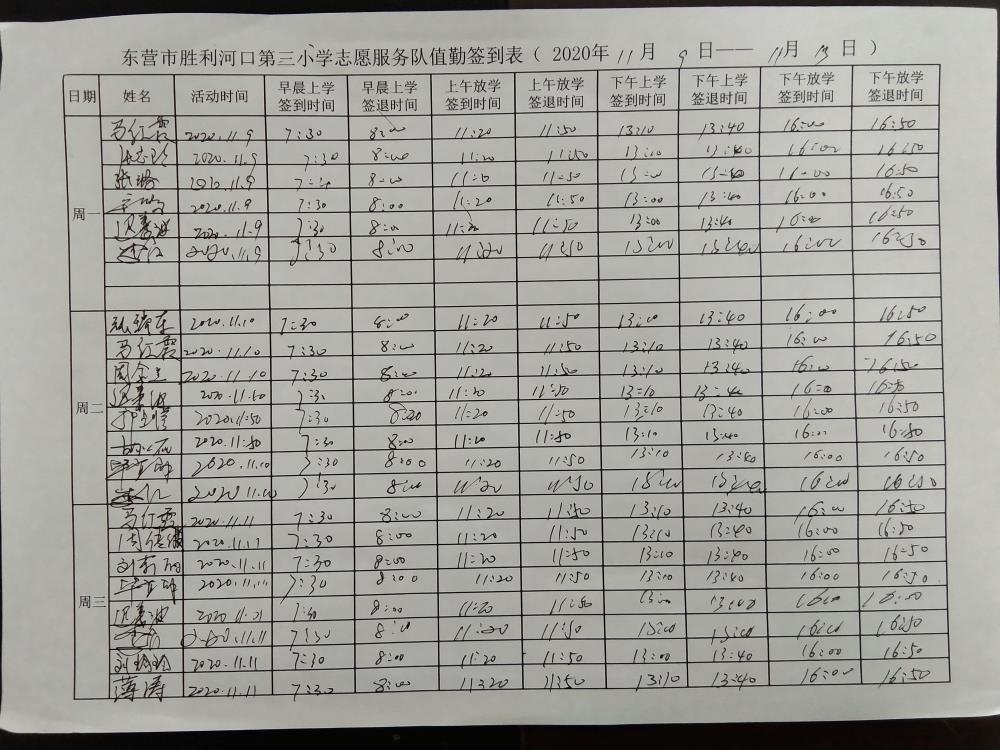 东营市胜利河口第三小学志愿服务队值勤签到表（ 2020年 11 月 9 日—— 11月 13 日 ）
日期 姓名 活动时间 早晨上学签到时间 早晨上学签退时间 上午放学签到时间 上午放学签退时间 下午上学签到时间 下午上学签退时间 下午放学签到时间 下午放学签退时间
周一
马红霞 2020.11.9 7:30 8:00 11:20 11:50 13:10 13:40 16:00 16:50
2020.11.9 7:30 8:00 11:20 11:50 13:10 13:40 16:00 16:50
张 2020.11.9 8:00 11:50 13:00 16:00 16:50
2020.11.9 7:30 8:00 11:20 11:50 13:00 13:40 16:00 16:50
2020.11.9 7:30 8:00 11:20 11:50 13:00 13:40 16:50
2020.11.9 7:30 8:00 11:20 11:50 13:00 13:40 16:00 16:50
周二
2020.11.10 7:30 8:00 11:20 11:50 13:10 13:40 16:00 16:50
马红霞 2020.11.10 7:30 8:00 11:20 11:50 13:10 13:40 16:00 16:50
周 2020.11.10 7:30 8:00 11:20 11:50 13:10 13:40 16:00 16:50
7:30 8:00 11:20 13:10 16:00
7:30 8:20 11:20 11:50 13:10 13:40 16:00 16:50
7:30 8:00 11:20 11:50 13:10 13:40 16:00 16:50
2020.11.10 7:30 8:00 11:20 11:50 13:10 13:40 16:00 16:50
2020.11.10 7:30 8:00 11:20 11:50 16:00 16:50
周三
马红霞 2020.11.11 7:30 8:00 11:20 11:50 13:10 13:40 16:00 16:50
周 2020.11.11 7:30 8:00 11:20 11:50 13:10 13:40 16:00 16:50
刘 2020.11.11 7:30 8:00 11:20 11:50 13:10 13:40 16:00 16:50
2020.11.11 7:30 8:00 11:20 11:50 13:10 13:40 16:00 16:50
7:30 8:00 11:20 11:50 13:00 13:40 16:00
11.11 7:30 8:00 11:20 11:50 13:00 13:40 16:00 16:50
刘玲玲 2020.11.11 7:30 8:00 11:20 11:50 13:00 13:40 16:00 16:50
薄涛 2020.11.11 7:30 8:00 11:20 11:50 13:10 13:40 16:00 16:50